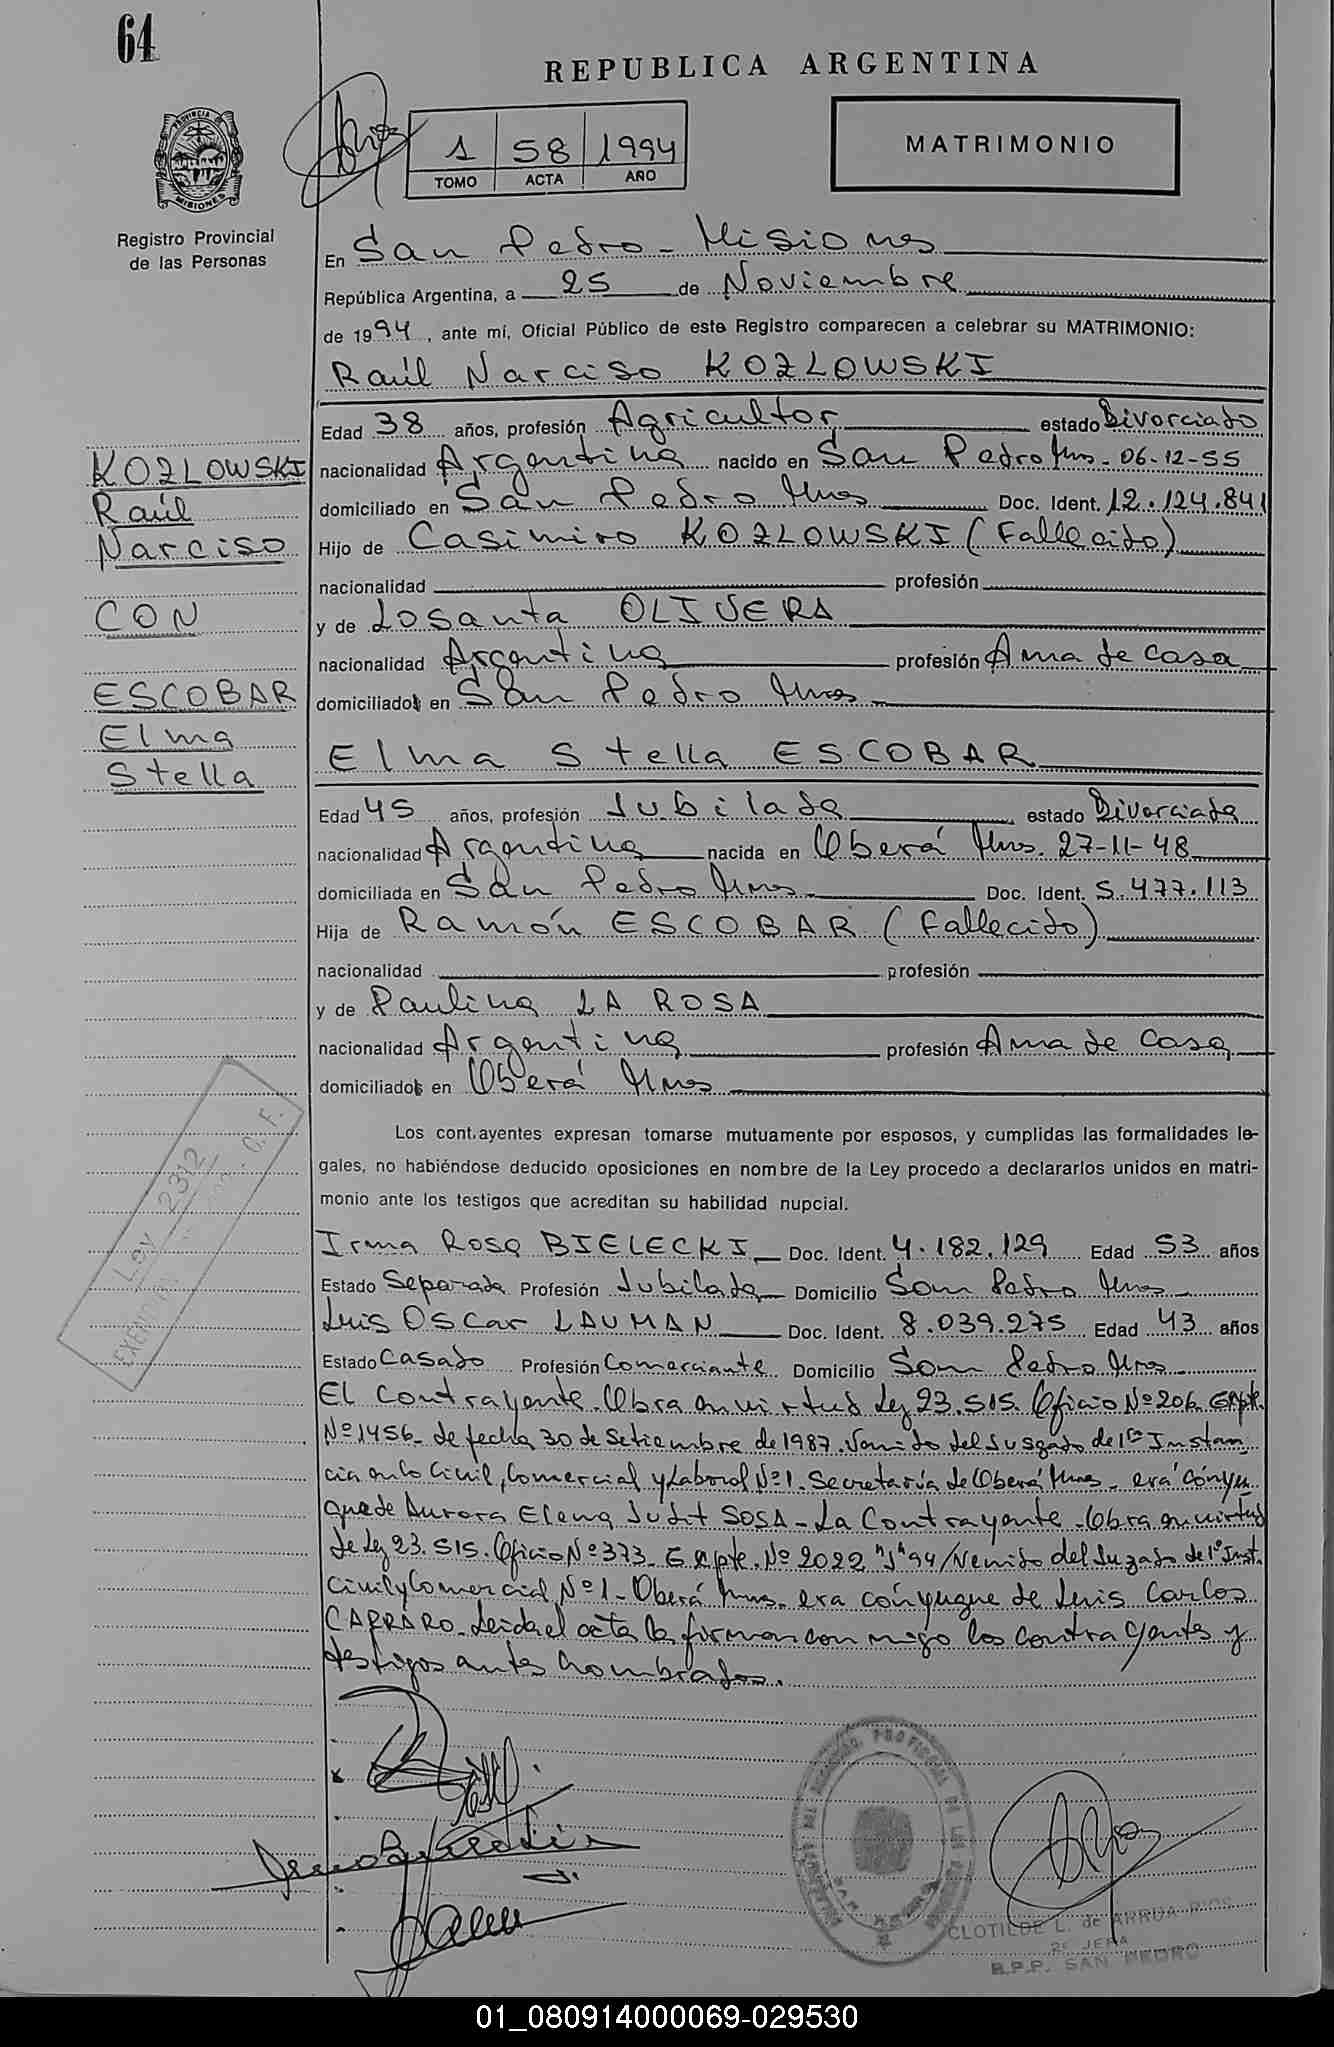 64
REPUBLICA ARGENTINA
PROVINCIA DE
MISIONES
1 58 1994
TOMO ACTA AÑO
MATRIMONIO
Registro Provincial
de las Personas
En San Pedro - Misiones
República Argentina, a 25 de Noviembre
de 1994, ante mí, Oficial Público de este Registro comparecen a celebrar su MATRIMONIO:
Raúl Narciso KOZLOWSKI
Edad 38 años, profesión Agricultor estado Divorciado
KOZLOWSKI
Raúl
Narciso
CON
ESCOBAR
Elma
Stella
nacionalidad Argentina nacido en San Pedro Mnes - 06-12-55
domiciliado en San Pedro Mnes Doc. Ident. 12.124.841
Hijo de Casimiro KOZLOWSKI (Fallecido)
nacionalidad profesión
y de Losanta OLIVERA
nacionalidad Argentina profesión Ama de casa
domiciliados en San Pedro Mnes
Elma Stella ESCOBAR
Edad 45 años, profesión Jubilada estado Divorciada
nacionalidad Argentina nacida en Oberá Mnes. 27-11-48
domiciliada en San Pedro Mnes Doc. Ident. 5.477.113
Hija de Ramón ESCOBAR (Fallecido)
nacionalidad profesión
y de Paulina LA ROSA
nacionalidad Argentina profesión Ama de Casa
domiciliados en Oberá Mnes
Los contrayentes expresan tomarse mutuamente por esposos, y cumplidas las formalidades le-
gales, no habiéndose deducido oposiciones en nombre de la Ley procedo a declararlos unidos en matri-
monio ante los testigos que acreditan su habilidad nupcial.
Ley 2312
Irma Rosa BIELECKI Doc. Ident. 4.182.129 Edad 53 años
Estado Separada Profesión Jubilada Domicilio San Pedro Mnes
Luis Oscar LAUMAN Doc. Ident. 8.039.275 Edad 43 años
Estado Casado Profesión Comerciante Domicilio San Pedro Mnes
El contrayente. Obra en virtud Ley 23.515. Oficio Nº 206 Expte.
Nº 1456 - de fecha 30 de Setiembre de 1987. Venido del Jusgado de 1ra Instan
cia en lo Civil, Comercial y Laboral Nº 1. Secretaría de Oberá Mnes - erá cónyu
gue de Aurora Elena Judit SOSA - La Contrayente - Obra en virtud
de Ley 23.515. Oficio Nº 373 - Expte. Nº 2022 "J" 94/Venido del Juzgado de 1º Inst.
Civil y Comercial Nº 1 - Oberá Mnes - era cónyugue de Luis Carlos
CARRARO - Leida el acta la firman con migo los contrayentes y
testigos antes nombrados.
CLOTILDE L. de ARRUA RIOS
2ª JEFA
R.P.P. SAN PEDRO
01_080914000069-029530